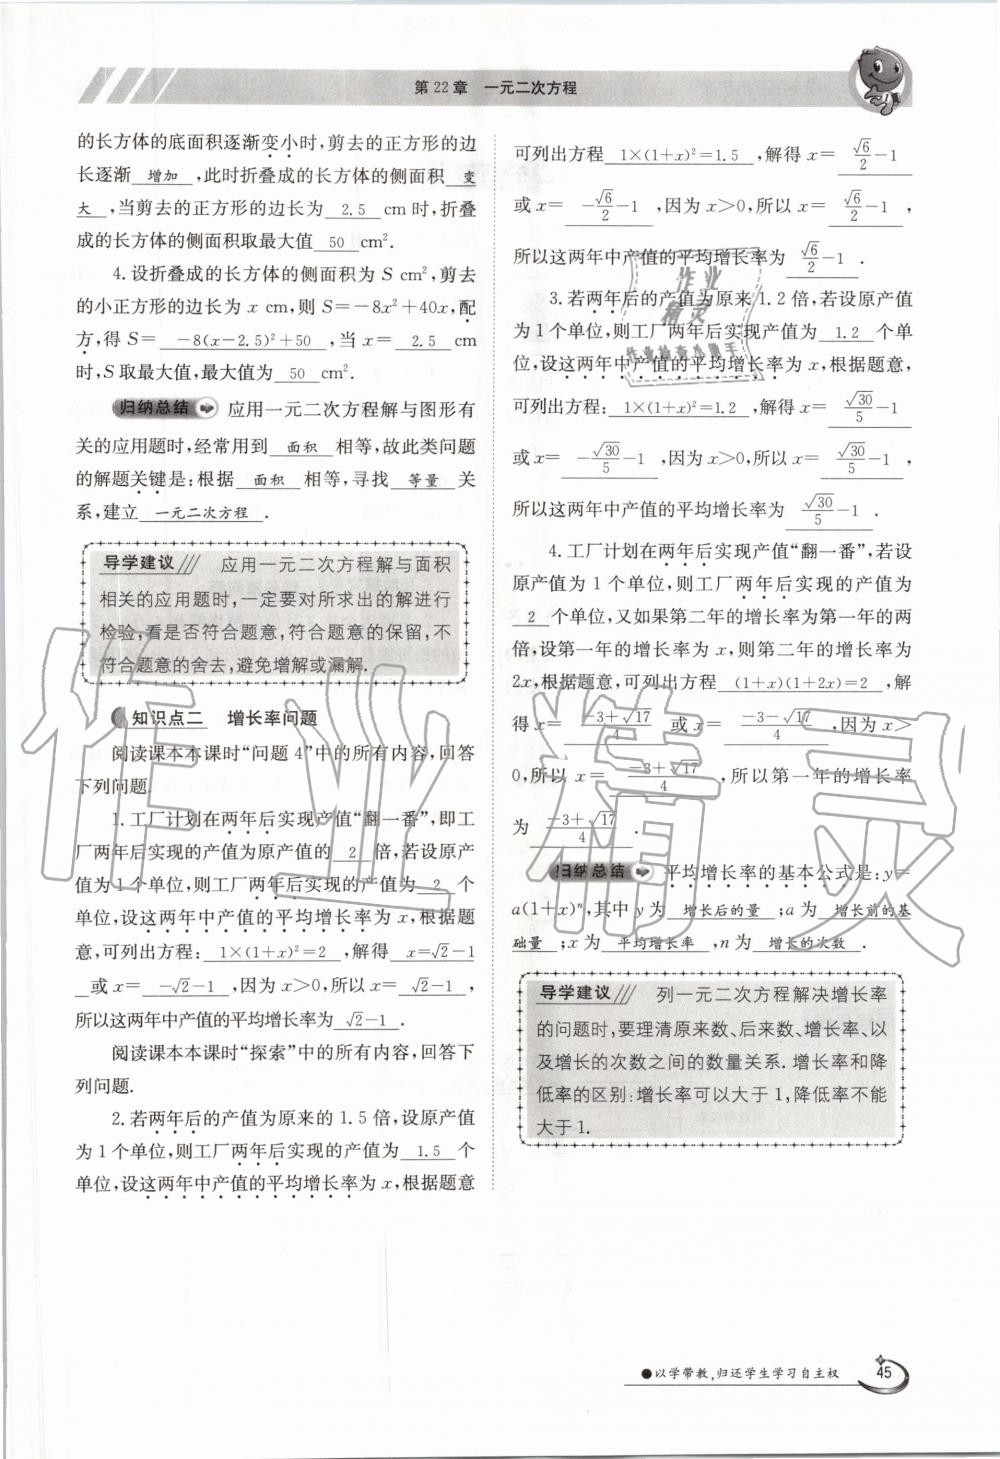 第22章 一元二次方程
的长方体的底面积逐渐变小时,剪去的正方形的边
长逐渐 增加 ,此时折叠成的长方体的侧面积 变
大 ,当剪去的正方形的边长为 2.5 cm时,折叠
成的长方体的侧面积取最大值 50 cm².
4.设折叠成的长方体的侧面积为S cm²,剪去
的小正方形的边长为x cm,则S=-8x²+40x,配
方,得S= -8(x-2.5)²+50 ,当x= 2.5 cm
时,S取最大值,最大值为 50 cm².
归纳总结 应用一元二次方程解与图形有
关的应用题时,经常用到 面积 相等,故此类问题
的解题关键是:根据 面积 相等,寻找 等量 关
系,建立 一元二次方程 .
导学建议 应用一元二次方程解与面积
相关的应用题时,一定要对所求出的解进行
检验,看是否符合题意,符合题意的保留,不
符合题意的舍去,避免增解或漏解.
知识点二 增长率问题
阅读课本本课时“问题4”中的所有内容,回答
下列问题.
1.工厂计划在两年后实现产值“翻一番”,即工
厂两年后实现的产值为原产值的 2 倍,若设原产
值为1个单位,则工厂两年后实现的产值为 2 个
单位,设这两年中产值的平均增长率为x,根据题
意,可列出方程: 1×(1+x)²=2 ,解得 x=√2-1
或x= -√2-1 ,因为x>0,所以x= √2-1 ,
所以这两年中产值的平均增长率为 √2-1 .
阅读课本本课时“探索”中的所有内容,回答下
列问题.
2.若两年后的产值为原来的1.5倍,设原产值
为1个单位,则工厂两年后实现产值为 1.5 个
单位,设这两年中产值的平均增长率为x,根据题意
可列出方程 1×(1+x)²=1.5 ,解得x= √6/2-1
或x= -√6/2-1 ,因为x>0,所以x= √6/2-1 ,
所以这两年中产值的平均增长率为 √6/2-1 .
3.若两年后的产值为原来1.2倍,若设原产值
为1个单位,则工厂两年后实现产值为 1.2 个单
位,设这两年中产值的平均增长率为x,根据题意,
可列出方程: 1×(1+x)²=1.2 ,解得x= √30/5-1
或x= -√30/5-1 ,因为x>0,所以x= √30/5-1 ,
所以这两年中产值的平均增长率为 √30/5-1 .
4.工厂计划在两年后实现产值“翻一番”,若设
原产值为1个单位,则工厂两年后实现的产值为
2 个单位,又如果第二年的增长率为第一年的两
倍,设第一年的增长率为x,则第二年的增长率为
2x,根据题意,可列出方程 (1+x)(1+2x)=2 ,解
得x= (-3+√17)/4 或x= (-3-√17)/4 ,因为x>
0,所以x= (-3+√17)/4 ,所以第一年的增长率
为 (-3+√17)/4 .
归纳总结 平均增长率的基本公式是:y=
a(1+x)ⁿ,其中y为 增长后的量 ;a为 增长前的基
础量 ;x为 平均增长率 ,n为 增长的次数 .
导学建议 列一元二次方程解决增长率
的问题时,要理清原来数、后来数、增长率、以
及增长的次数之间的数量关系.增长率和降
低率的区别:增长率可以大于1,降低率不能
大于1.
作业
精灵
作业检查小助手
作业精灵
●以学带教,归还学生学习自主权
45